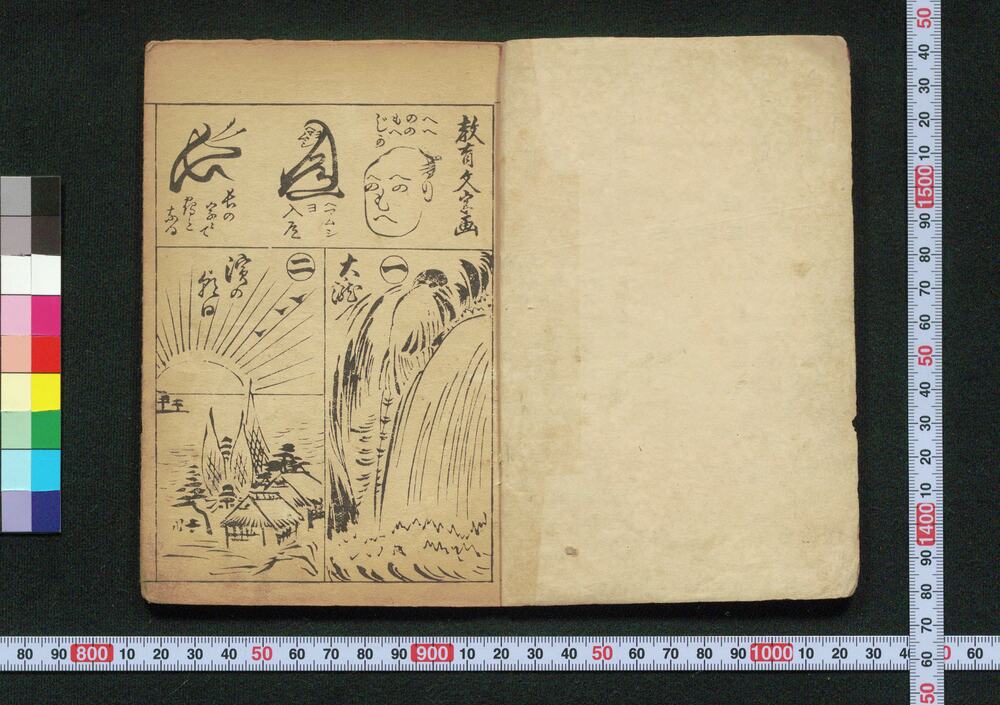 教育文字画
へへ
のの
もへ
じの
ヘマムシ
ヨ
入道
長の
字にて
鶴と
なる
一
大瀧
二
濱の
朝日
80 90 800 10 20 30 40 50 60 70 80 90 900 10 20 30 40 50 60 70 80 90 1000 10 20 30 40 60
50 40 30 20 10 1500 90 80 70 60 50 40 30 20 10 1400 90 80 70 60 50